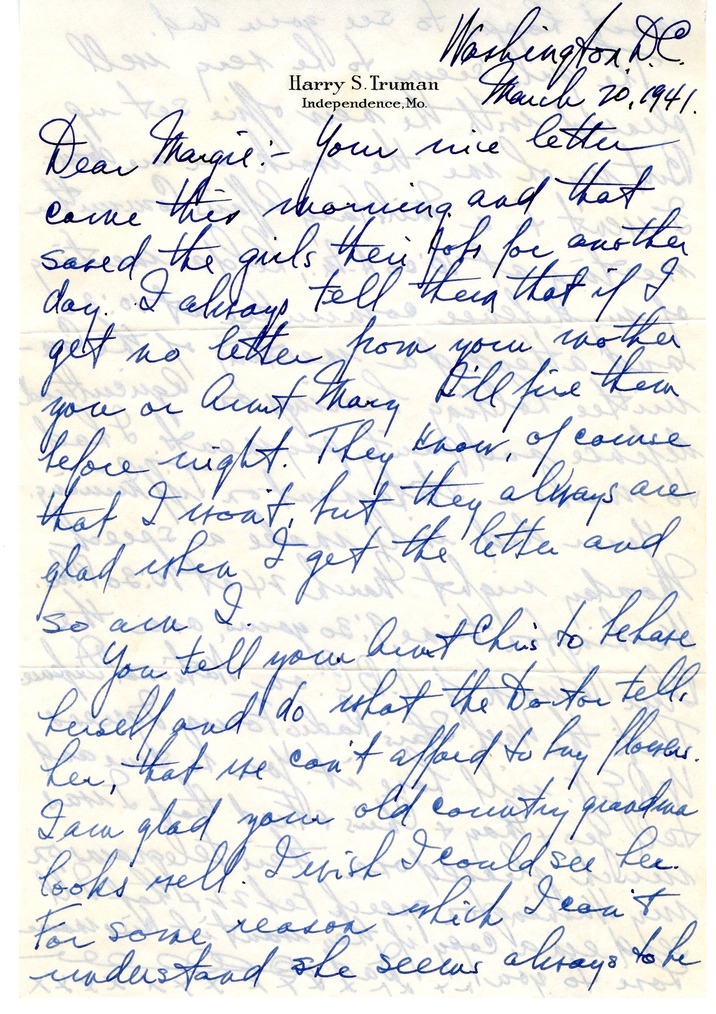 Washington, D.C.
Harry S. Truman
Independence, Mo.
March 20, 1941.
Dear Margie:- Your nice letter
came this morning and that
saved the girls their jobs for another
day. I always tell them that if I
get no letter from your mother
you or Aunt Mary I'll fire them
before night. They know, of course
that I won't, but they always are
glad when I get the letter and
so am I.
You tell your Aunt Chris to behave
herself and do what the Doctor tells
her, that we can't afford to buy flowers.
I am glad your old country grandma
looks well. I wish I could see her.
For some reason which I can't
understand she seems always to be